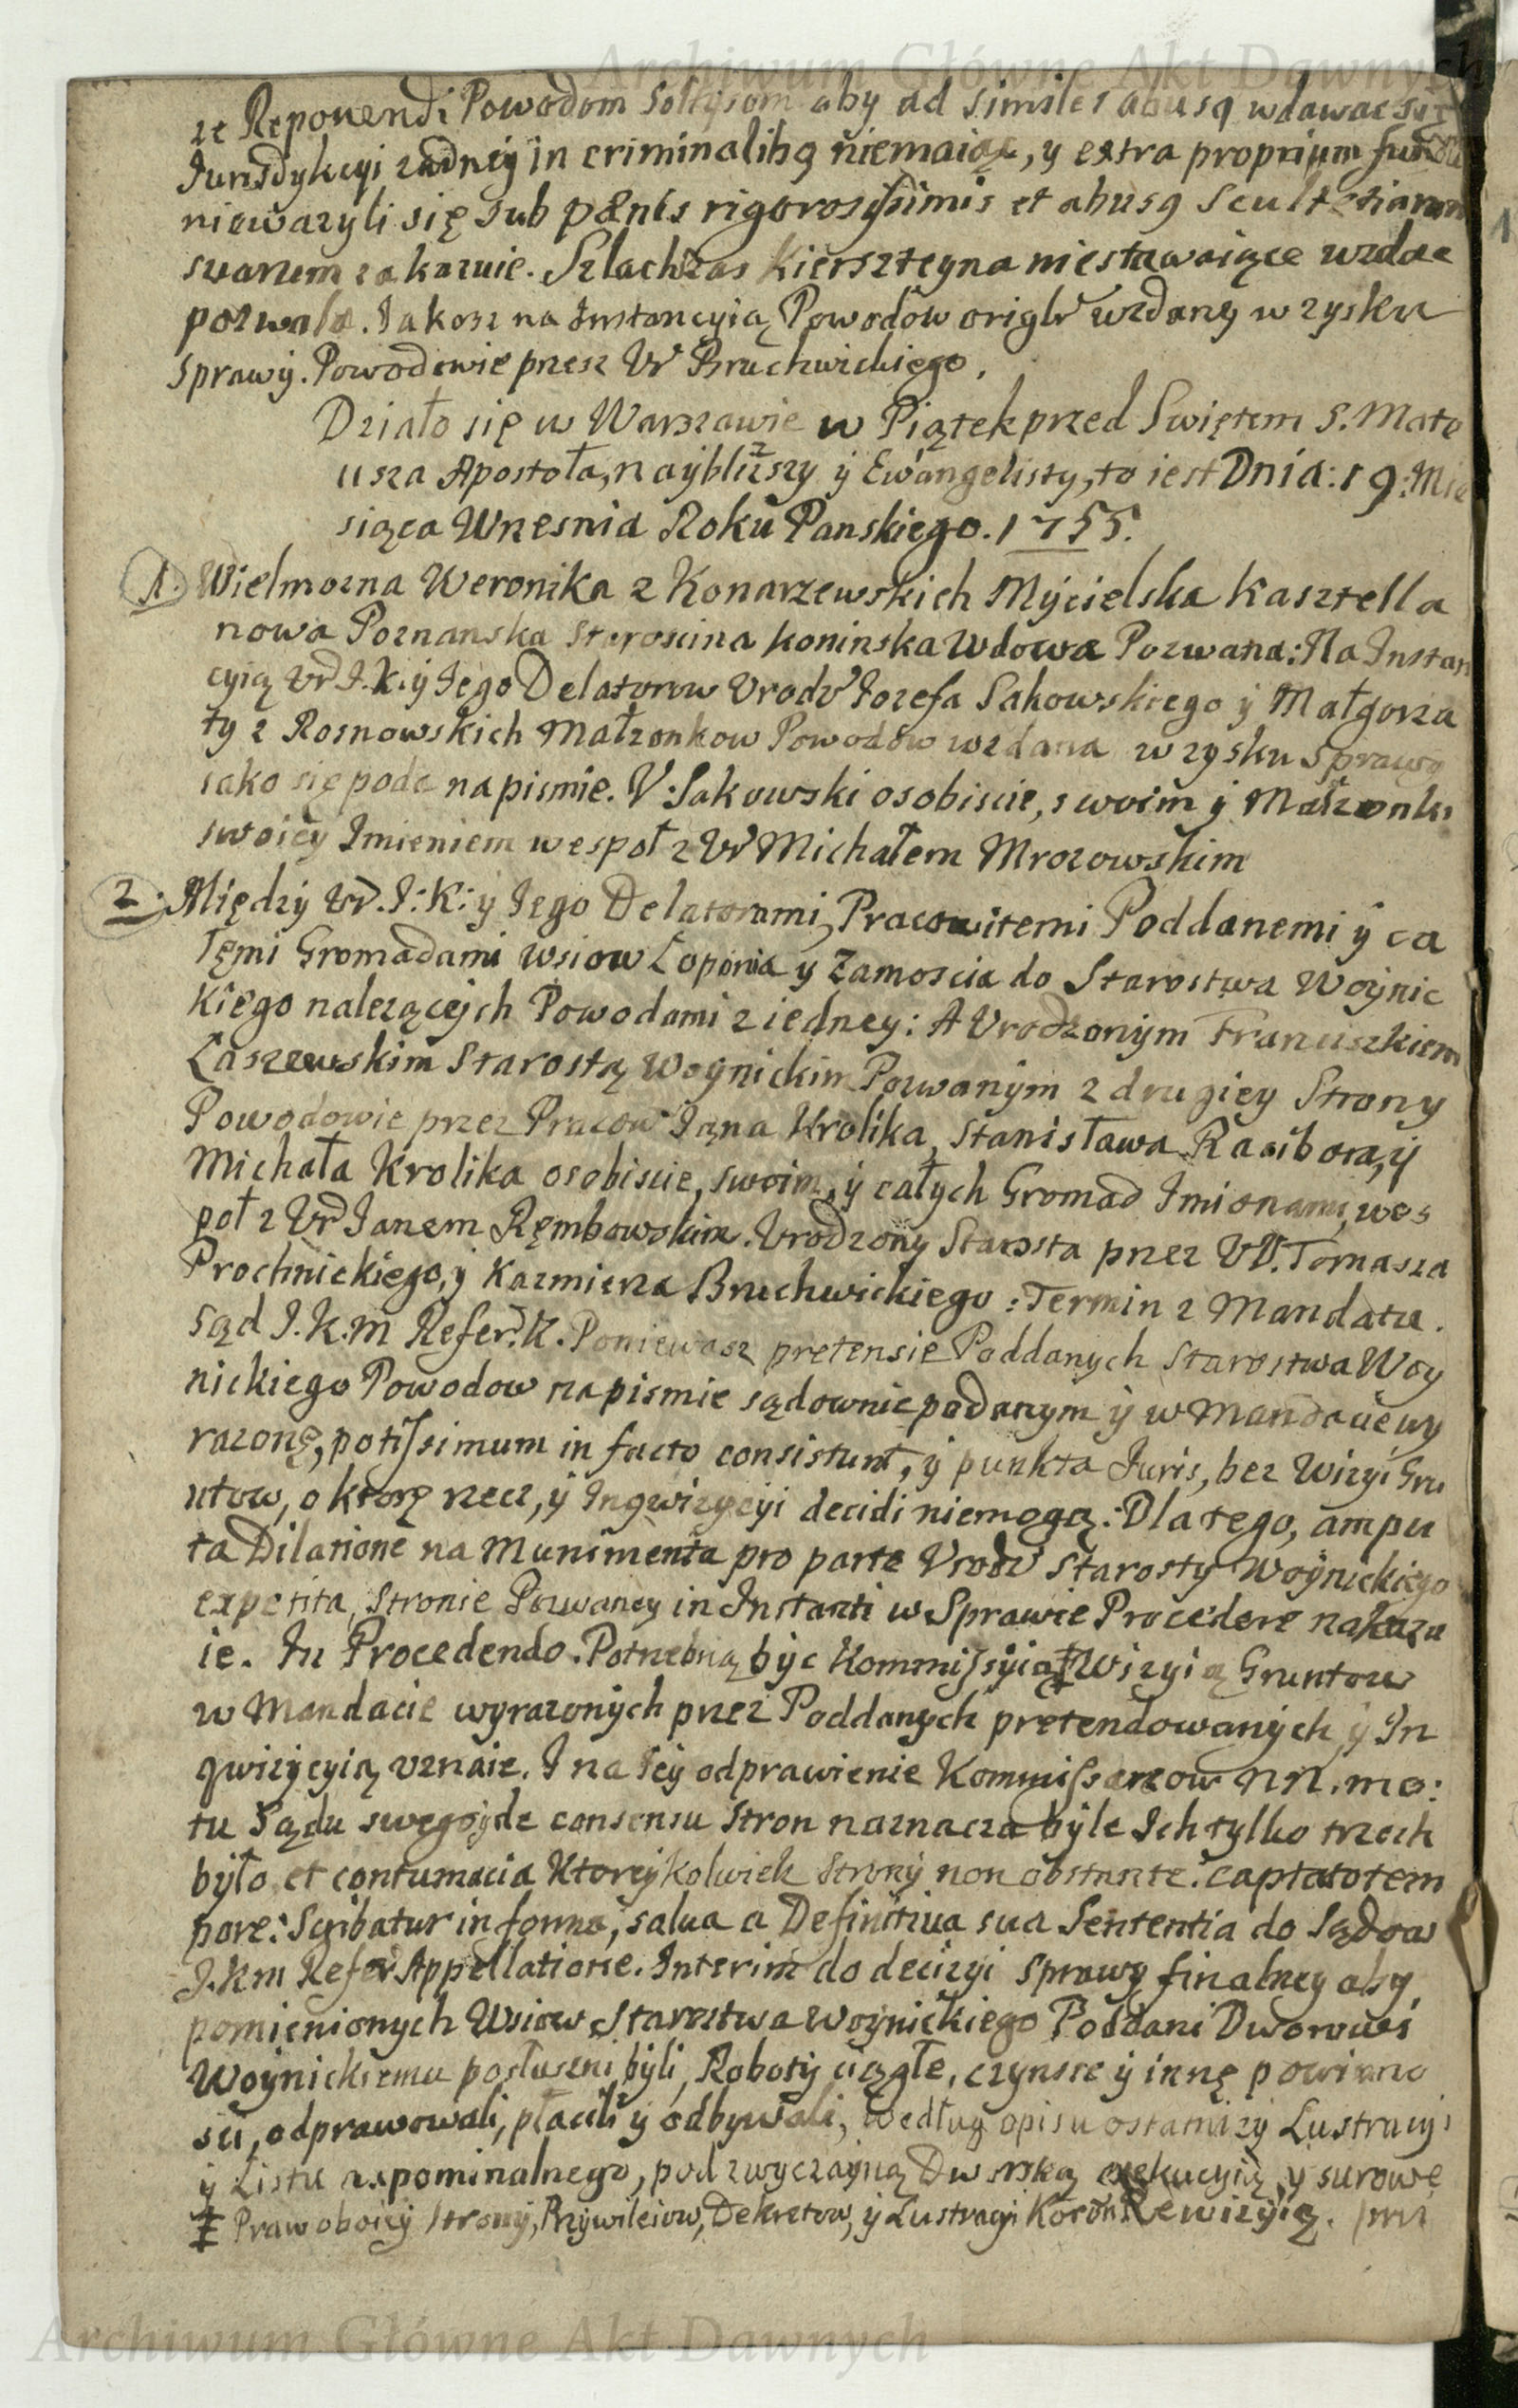 Archiwum Główne Akt Dawnych
ze Reponendi Powodom Sołtysom aby ad similes abusq wdawac się
Jurisdykcyi zadney in criminalibq niemaiąc, y extra proprium fundum
nieważyli się sub pænis rigorosissimis et abusq Scultetiarum
suarum zakazuie. Szlachtas Kierszteyna niestawaiące wzdac
pozwala. Jakosz na Instancyią Powodow origlr wzdany w zysku
Sprawy. Powodowie przez Ur Bruchwickiego.
Działo się w Warszawie w Piątek przed Swiętem S. Mate
usza Apostoła, nayblizszy y Ewangelisty, to iest Dnia: 19: Mie
siąca Wrzesnia Roku Panskiego. 1755.
1. Wielmozna Weronika z Konarzewskich Mycielska Kasztella
nowa Poznanska Staroscina koninska Wdowa Pozwana: Na Instan
cyią Ur J. K. y Jego Delatorow Urodz Jozefa Sakowskiego y Małgorza
ty z Rosnowskich Małzonkow Powodow wzdana w zysku Sprawy
iako się poda na pismie. U: Sakowski osobiscie, swoim y Małzonki
swoiey Imieniem wespoł z Ur Michałem Mrozowskim
2. Między Ur. J: K: y Jego Delatorami, Pracowitemi Poddanemi y ca
łęmi Gromadami wsiow Łoponia y Zamoscia do Starostwa Woynic
kiego nalezącejch Powodami z iedney: A Urodzonym Franciszkiem
Łaszewskim Starostą Woynickim Pozwanym z drugiey Strony
Powodowie przez Pracow Jana Krolika, Stanisława Raciborа, y
Michała Krolika osobiscie, swoim, y całych Gromad Imionami, wes
poł z Ur Janem Rębowskim. Urodzony Starosta przez UU. Tomasza
Prochnickiego, y Kazmierza Bruchwickiego: Termin z Mandatu.
Sąd J. K. M Refer. K. Poniewasz pretensie Poddanych Starostwa Woy
nickiego Powodow na pismie sądownie podanym y w Mandacie wy
razonę, potissimum in facto consistunt, y punkta Juris, bez Wizyi Gru
ntow, o ktorę rzecz, y Inqwizycyi decidi niemogą: Dla tego, ampu
ta Dilatione na Munimenta pro parte Urodz Starosty Woynickiego
expetita, Stronie Pozwaney in Instanti w Sprawie Procedere nakazu
ie. In Procedendo. Potrzebną być Kommissyią ‡ Wizyią Gruntow
w Mandacie wyrazonych przez Poddanych pretendowanych y In
qwizycyią uznaie. I na Iey odprawienie Kommissarzow NN. mo:
tu Sądu swego y de consensu Stron naznacza byle Ich tylko trzech
było et contumacia ktoreykolwiek Strony non obstante. Captato tem
pore: Scribatur in forma, salua a Definitiua sua Sententia do Sądow
J. K m Refer Appellatione. Interim do decizyi sprawy finalney aby,
pomienionych Wsiow Starostwa Woynickiego Poddani Dworowi
Woynickiemu posłuszni byli, Roboty ciągłe, czynsze y innę powinno
sci, odprawowali, płacili y odbywali, według opisu ostatniey Lustracyi
y Listu napominalnego, pod zwyczayną Dworską exekucyią, y surowe
‡ Praw oboiey strony, Przywileiow, Dekretow, y Lustracyi Koron Rewizyią.
Archiwum Główne Akt Dawnych